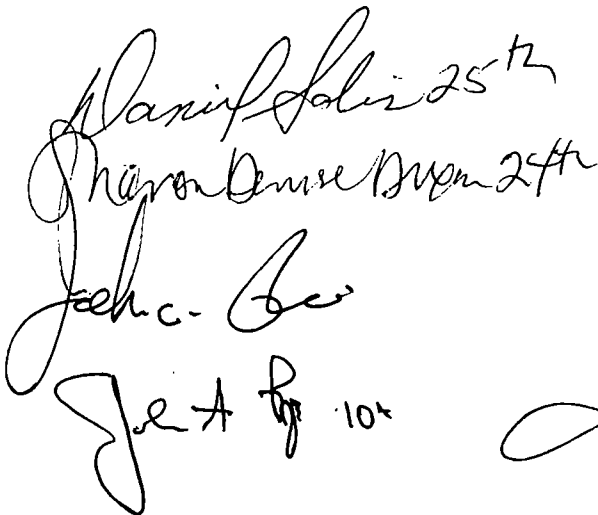 Daniel Solis 25th
Sharon Denise Dixon 24th
John A Pope 10th